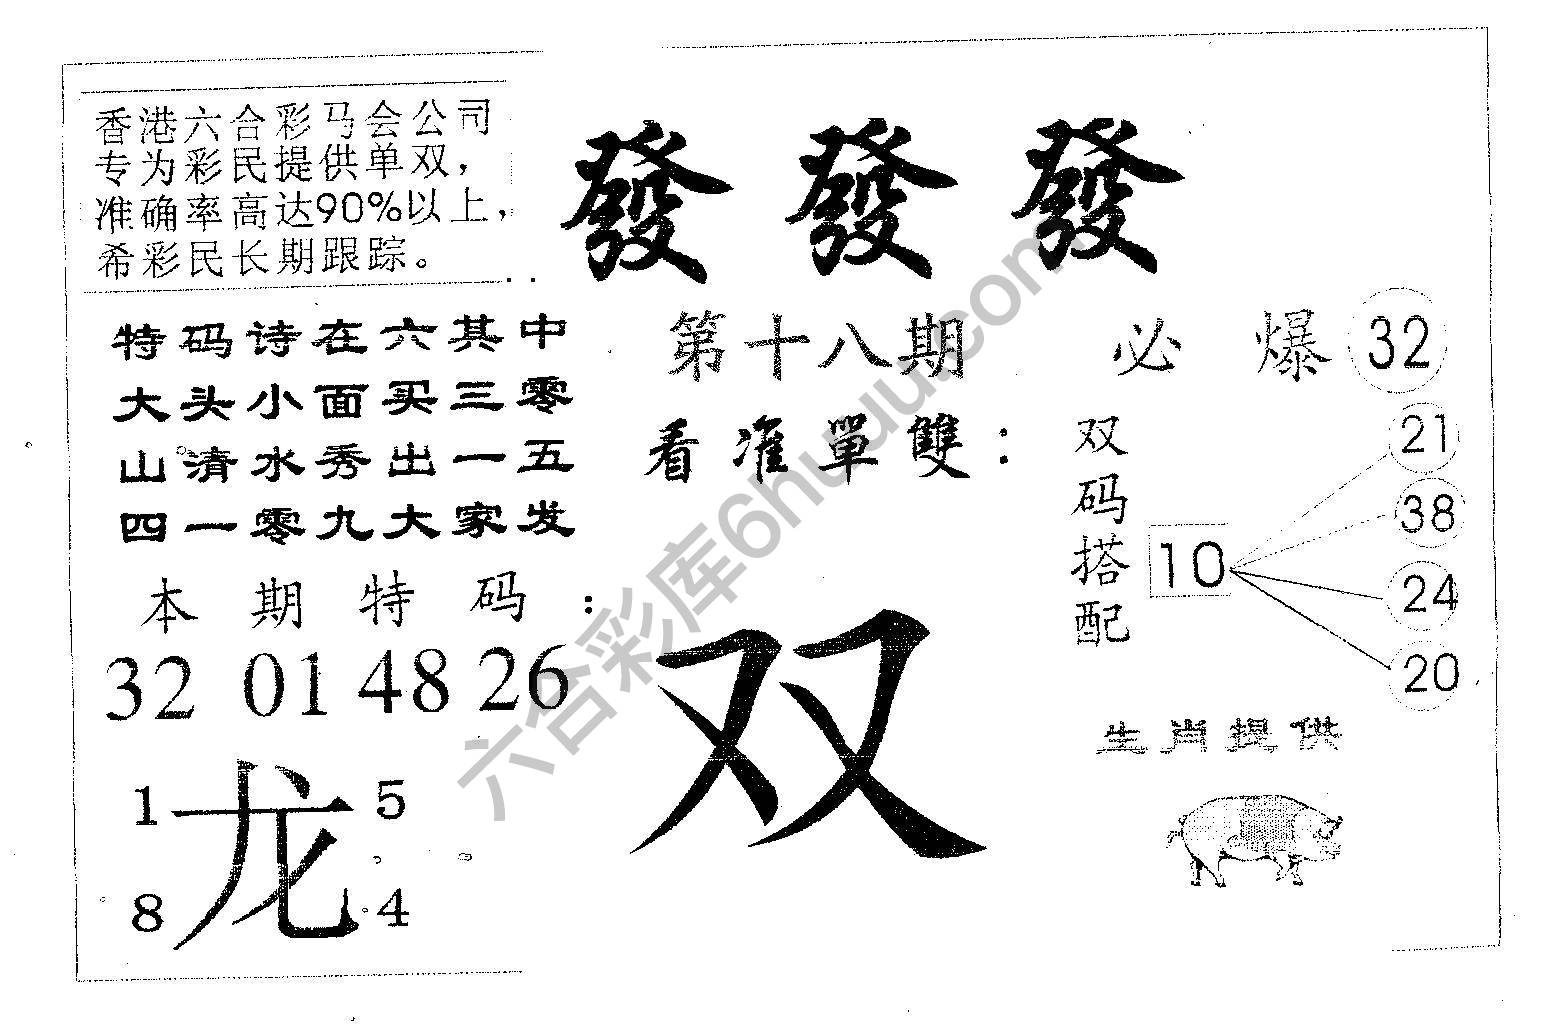 香港六合彩马会公司
专为彩民提供单双，
准确率高达90%以上，
希彩民长期跟踪。
發發發
特码诗在六其中
大头小面买三零
山清水秀出一五
四一零九大家发
第十八期
看准單雙：
必爆32
双码搭配
10
21
38
24
20
本期特码：
32 01 48 26
双
生肖提供
1 5
龙
8 4
六合彩库6huuu.com